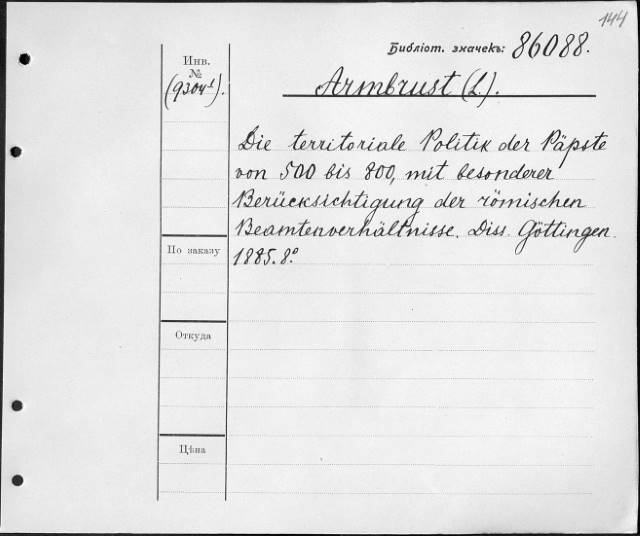 144
Библіот. значекъ: 86088.
Инв.
№
(9304¹).
Armbrust (L.).
Die territoriale Politik der Päpste
von 500 bis 800, mit besonderer
Berücksichtigung der römischen
Beamtenverhältnisse. Diss. Göttingen.
1885. 8.°
По заказу
Откуда
Цѣна